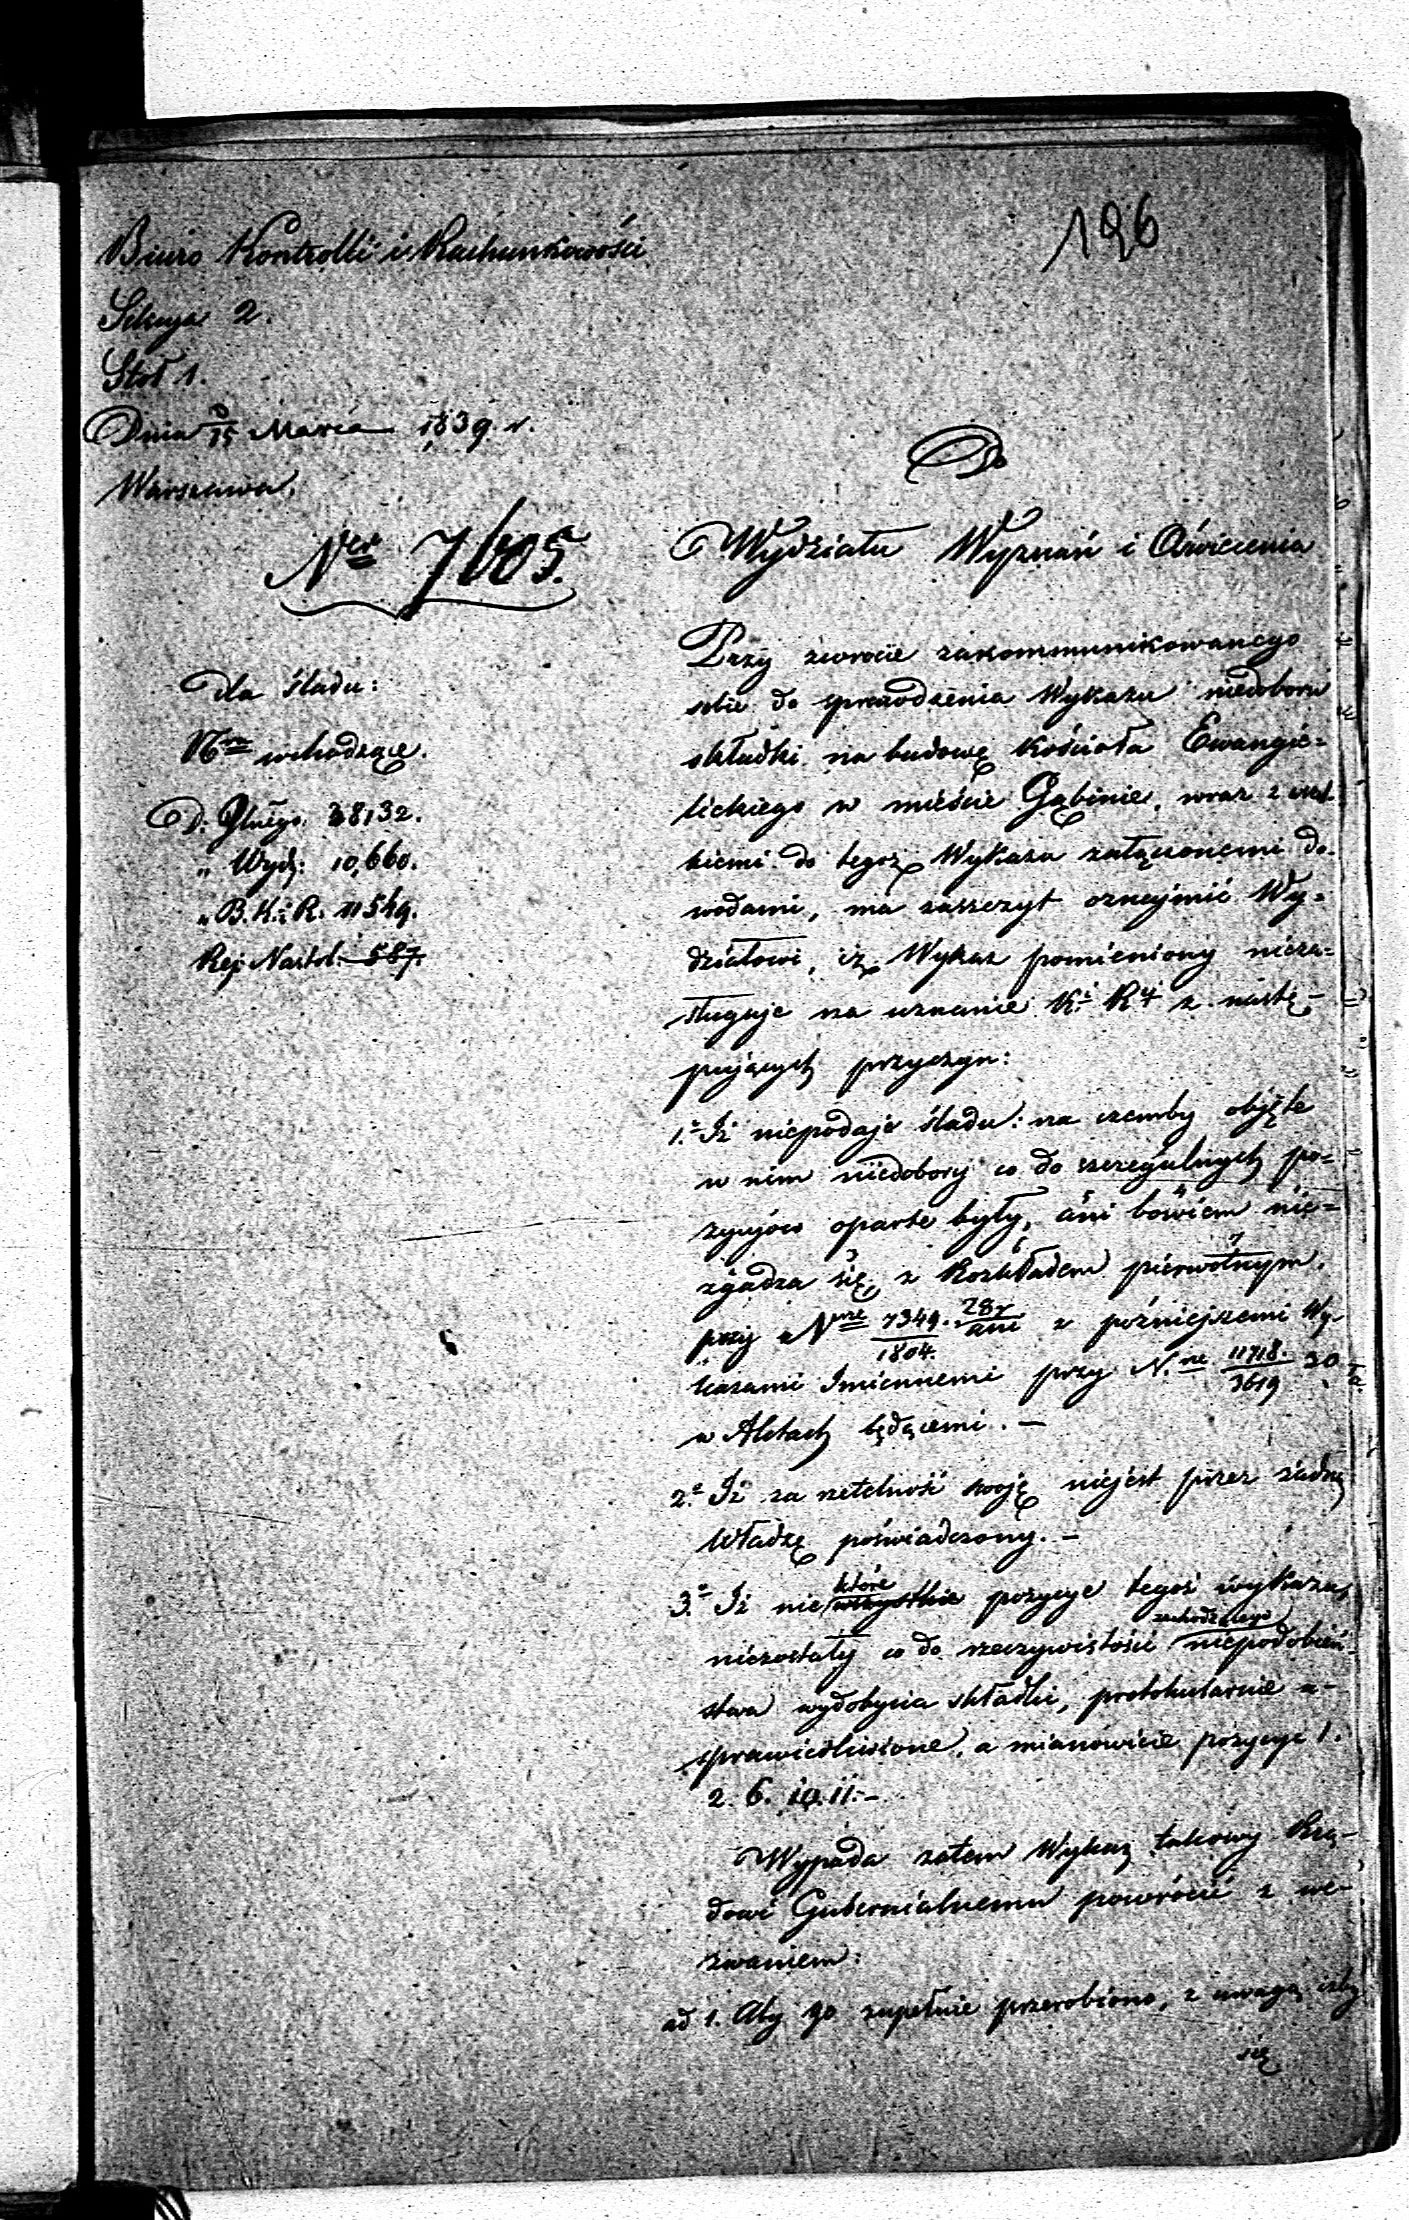 126
Biuro Kontrolli i Rachunkowości
Sekcya 2.
Stoł 1.
Dnia 3/15 Marca 1839 r.
Warszawa.
Ner 7605.
Do
Wydziału Wyznań i Oświecenia
dla śladu:
Nra wchodzące.
D. Głnego: 38132.
„ Wydz: 10,660.
„ B. K. i R. 11549.
Rej: Nastol. 587.
Przy zwrocie zakommunikowanego
sobie do sprawdzenia Wykazu niedoboru
składki na budowę Kościoła Ewangie-
lickiego w mieście Gąbinie, wraz z wszel-
kiemi do tegoż Wykazu załączonemi do-
wodami, ma zaszczyt oznaymić Wy-
działowi, iż Wykaz pomieniony nieza-
sługuje na uznanie z nastę-
pujących przyczyn:
1. Iż niepodaje śladu: na czemby objęte
w nim niedobory co do szczegulnych po-
zycyów oparte były, ani bowiem nie-
zgadza się z Rozkładem pierwotnym
przy Nrze 7349/1804 28r ani z późniejszemi Wy-
kazami Imiennemi przy N.rze 11718/3619 30
w Aktach będącemi. —
2. Iż za rzetelność swoję niejest przez żadną
Władzę poświadczony. —
3. Iż nie wszystkie które pozycye tegoż wykazu,
niezostały co do rzeczywistości zachodzącego niepodobień-
stwa wydobycia składki, protokularnie u-
sprawiedliwione, a mianowicie pozycye 1.
2. 6. 10. 11. —
Wypada zatem Wykaz takowy Rzą-
dowi Gubernialnemu powrócić z we-
zwaniem:
ad 1. Aby go zupełnie przerobiono, z uwagą iżby
się